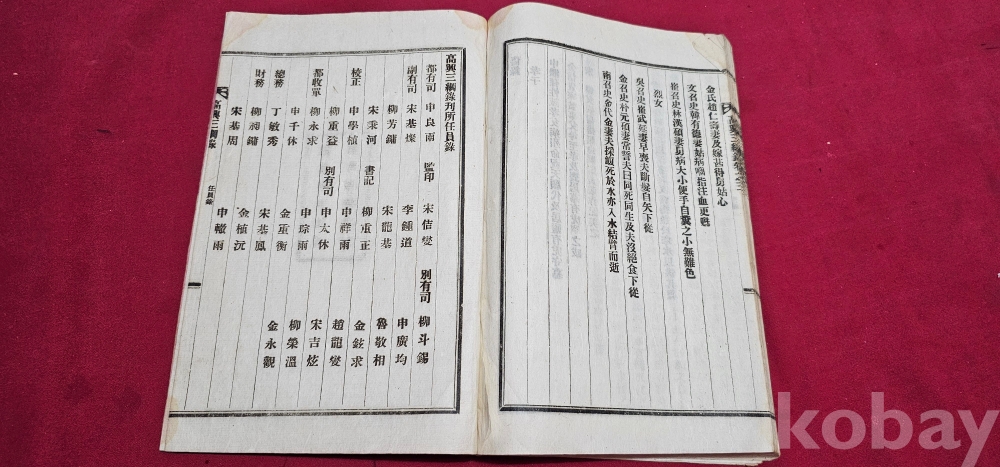 金氏趙仁壽妻及嫁甚得舅姑心
文召史韓有德妻姑病嚙指注血更甦
崔召史林漢碩妻舅病大小便手自䙝之小無難色
烈女
吳召史崔武延妻早喪夫斷髮自矢下從
金召史朴元禎妻常誓夫曰同死同生及夫沒絕食下從
南召史金代金妻夫採鰒死於水亦入水結臂而逝
高興三綱錄刊所任員錄
都有司 申良雨 監印 宋佶燮 別有司 柳斗錫
副有司 宋基燦 李鍾道 申廣均
柳芳鏞 宋龍基 魯敬相
宋秉河 書記 柳重正 金鉉求
校正 申學植 申祥雨 趙龍燮
柳重益 別有司 申太休 宋吉炫
都收單 柳永求 申琮雨 柳榮溫
申千休 金重衡 金永觀
總務 丁敏秀 宋基鳳
柳昶鏞 金植沅
財務 宋基周 申轍雨
高興三綱錄 任員錄
kobay